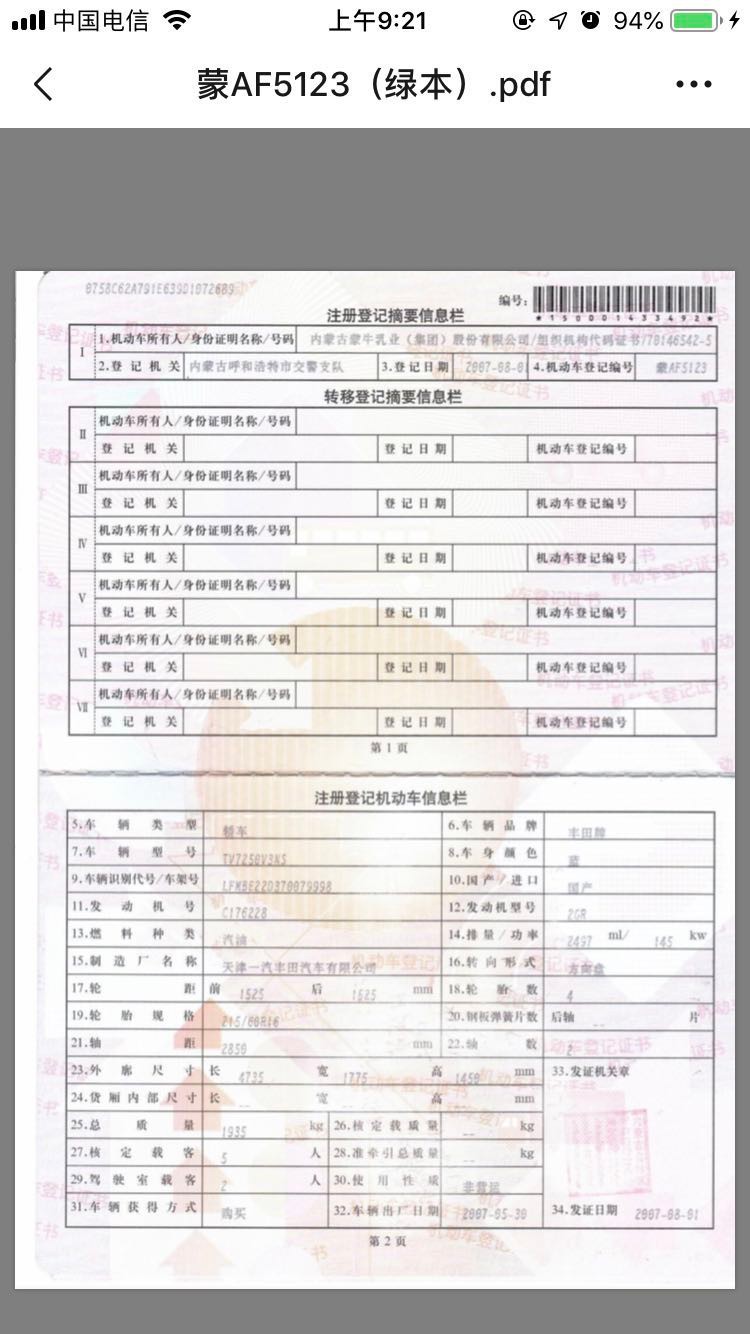 中国电信 上午9:21 94%
蒙AF5123（绿本）.pdf
编号：
*150001433492*
注册登记摘要信息栏
I 1.机动车所有人/身份证明名称/号码 内蒙古蒙牛乳业（集团）股份有限公司/组织机构代码证书/70146542-5
2.登记机关 内蒙古呼和浩特市交警支队 3.登记日期 2007-08-01 4.机动车登记编号 蒙AF5123
转移登记摘要信息栏
II 机动车所有人/身份证明名称/号码
登记机关 登记日期 机动车登记编号
III 机动车所有人/身份证明名称/号码
登记机关 登记日期 机动车登记编号
IV 机动车所有人/身份证明名称/号码
登记机关 登记日期 机动车登记编号
V 机动车所有人/身份证明名称/号码
登记机关 登记日期 机动车登记编号
VI 机动车所有人/身份证明名称/号码
登记机关 登记日期 机动车登记编号
VII 机动车所有人/身份证明名称/号码
登记机关 登记日期 机动车登记编号
第1页
注册登记机动车信息栏
5.车辆类型 轿车 6.车辆品牌 丰田牌
7.车辆型号 TV7250V3NS 8.车身颜色 蓝
9.车辆识别代号/车架号 LFMBE22D370079998 10.国产/进口 国产
11.发动机号 C176228 12.发动机型号 2GR
13.燃料种类 汽油 14.排量/功率 2497 ml/ 145 kw
15.制造厂名称 天津一汽丰田汽车有限公司 16.转向形式 方向盘
17.轮距 前 1525 后 1525 mm 18.轮胎数 4
19.轮胎规格 215/60R16 20.钢板弹簧片数 后轴 -- 片
21.轴距 2850 mm 22.轴数 2
23.外廓尺寸 长 4735 宽 1775 高 1450 mm 33.发证机关章
24.货厢内部尺寸 长 -- 宽 -- 高 -- mm
25.总质量 1935 kg 26.核定载质量 -- kg
27.核定载客 5 人 28.准牵引总质量 -- kg
29.驾驶室载客 2 人 30.使用性质 非营运
31.车辆获得方式 购买 32.车辆出厂日期 2007-05-30 34.发证日期 2007-08-01
第2页